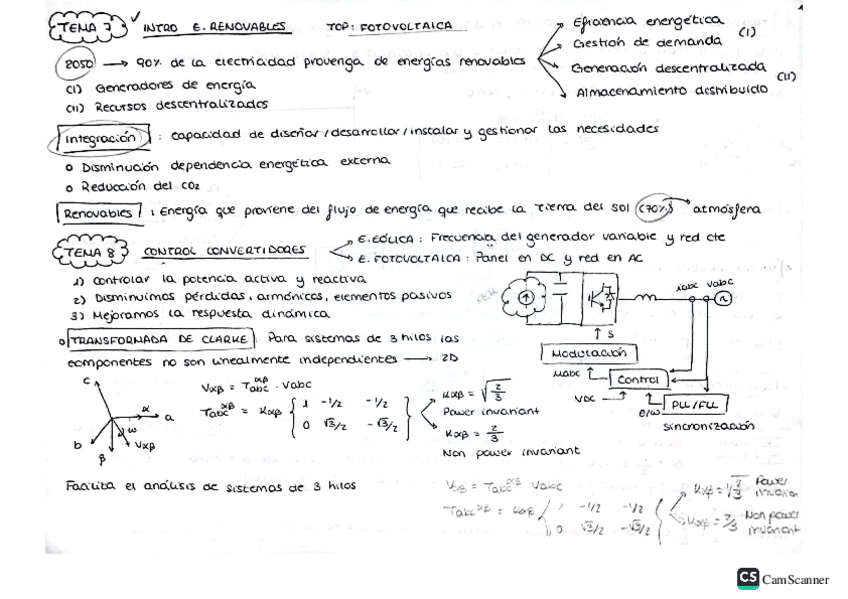 TEMA 7 ✓ INTRO E. RENOVABLES TOP: FOTOVOLTAICA
Eficiencia energética
Gestión de demanda (I)
Generación descentralizada
Almacenamiento distribuido (II)
2050 → 90% de la electricidad provenga de energías renovables
(I) Generadores de energía
(II) Recursos descentralizados
Integración : capacidad de diseñar/desarrollar/instalar y gestionar las necesidades
o Disminución dependencia energética externa
o Reducción del CO2
Renovables : Energía que proviene del flujo de energía que recibe la Tierra del sol (70%) atmósfera
TEMA 8 CONTROL CONVERTIDORES
E. EÓLICA : Frecuencia del generador variable y red cte
E. FOTOVOLTAICA : Panel en DC y red en AC
1) Controlar la potencia activa y reactiva
2) Disminuimos pérdidas, armónicos, elementos pasivos
3) Mejoramos la respuesta dinámica
iabc vabc
S
Modulación
mabc
Control
VDC
θ/ω
PLL/FLL
Sincronización
o TRANSFORMADA DE CLARKE : Para sistemas de 3 hilos las
componentes no son linealmente independientes → 2D
c α a ω b Vαβ β
Vαβ = Tabc^αβ · Vabc
Tabc^αβ = Kαβ { 1 -1/2 -1/2
0 √3/2 -√3/2 }
Kαβ = √2/3
Power invariant
Kαβ = 2/3
Non power invariant
Facilita el análisis de sistemas de 3 hilos
Vαβ = Tabc^αβ Vabc
Tabc^αβ = Kαβ { 1 -1/2 -1/2
0 √3/2 -√3/2 }
Power
Kαβ = 2/3 Non power
invariant
CS CamScanner